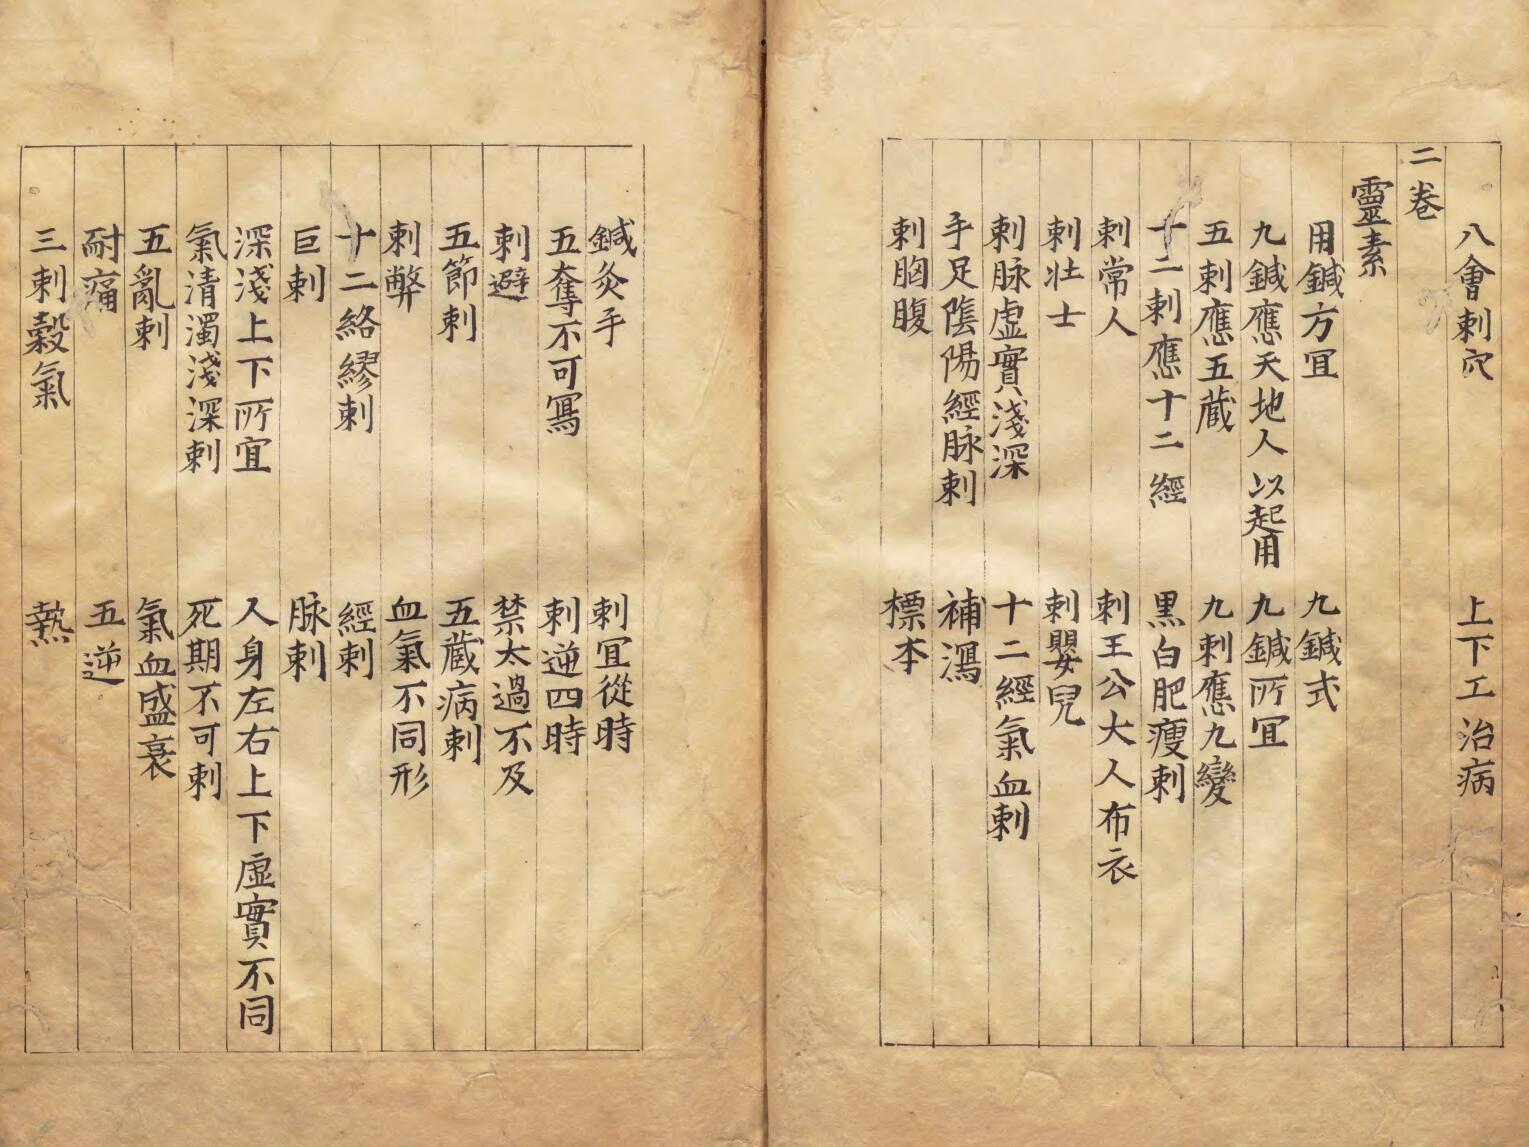 八會刺穴 上下工治病
二卷
靈素
用鍼方冝 九鍼式
九鍼應天地人以起用 九鍼所冝
五刺應五蔵 九刺應九變
十二刺應十二經 黒白肥瘦刺
刺常人 刺王公大人布衣
刺壮士 刺嬰兒
刺脉虛實淺深 十二經氣血刺
手足陰陽經脉刺 補瀉
刺胸腹 標本
鍼灸手 刺冝從時
五奪不可寫 刺逆四時
刺避 禁太過不及
五節刺 五蔵病刺
刺弊 血氣不同形
十二絡繆刺 經刺
巨刺 脉刺
深淺上下所宜 人身左右上下虛實不同
氣清濁淺深刺 死期不可刺
五亂刺 氣血盛衰
耐痛 五逆
三刺穀氣 熱